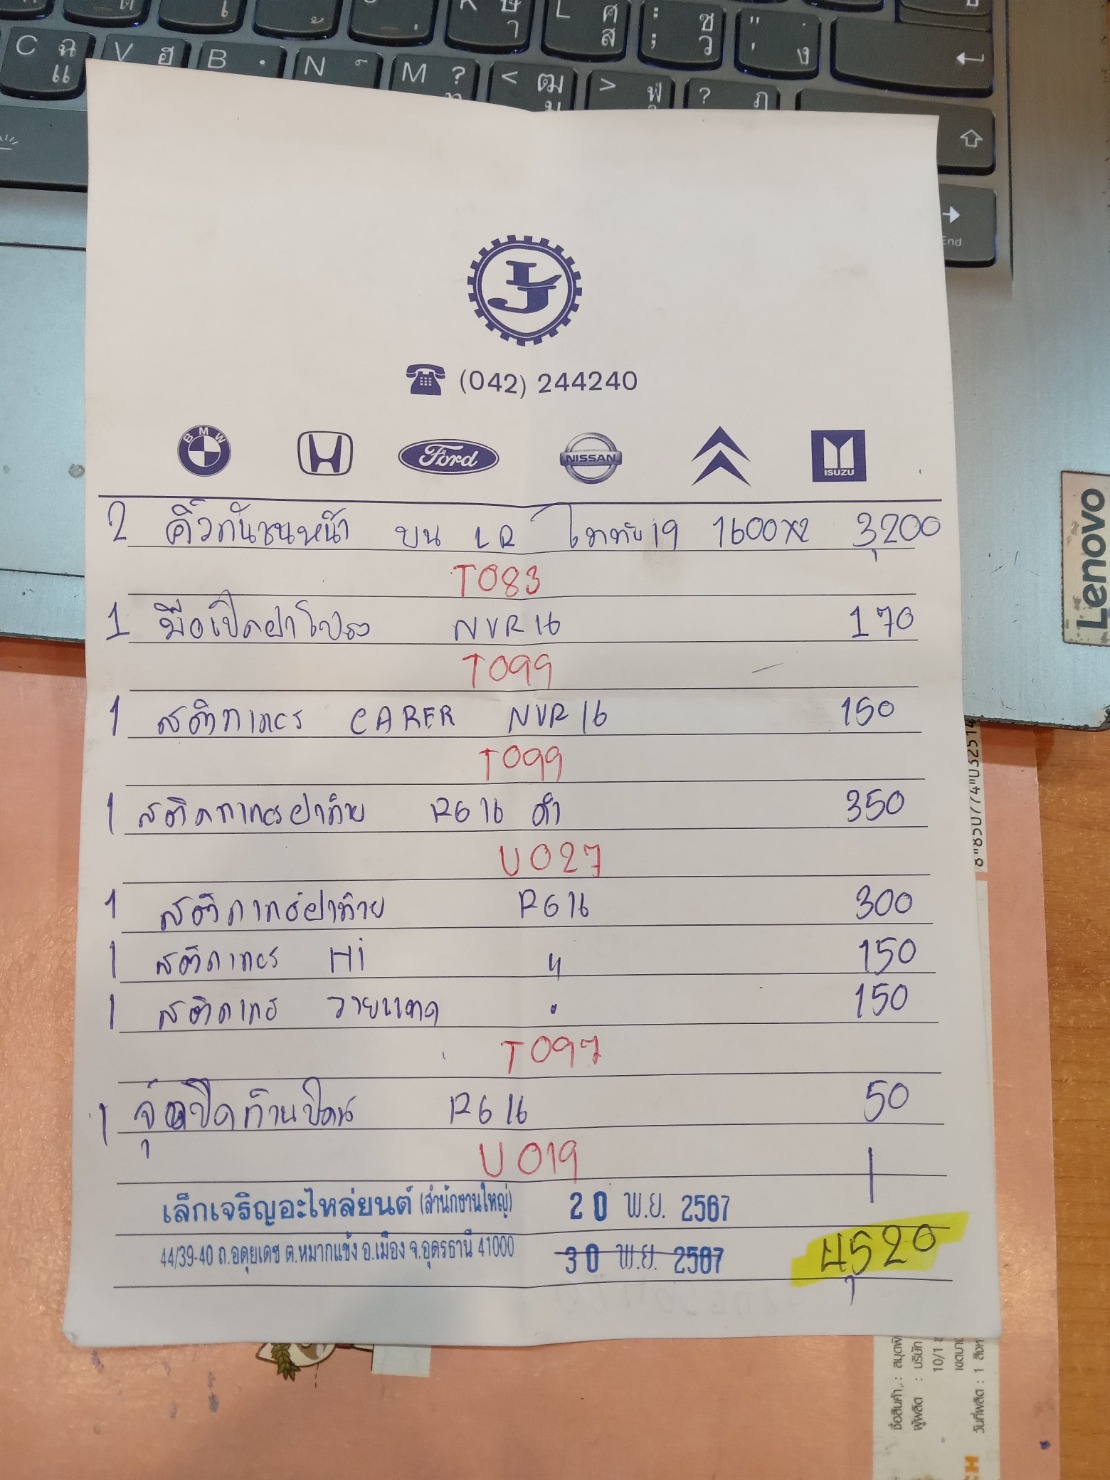 C ฉ แ
V ฮ
B
N
M ?
< ฒ ม
> ฬ
? ฦ
K ษ า
L ศ ส
: ; ซ ว
" ' . ง
End
LJ
(042) 244240
BMW
H
Ford
NISSAN
ISUZU
2 คิ้วกันชนหน้า บน LR ไททัน19 1600x2 3,200
T083
1 มือเปิดฝาโปรง NVR16 170
T099
1 สติกเกอร์ NVR16 150
T099
1 สติกเกอร์ฝาท้าย RG16 ดำ 350
U027
1 สติกเกอร์ฝาท้าย RG16 300
1 สติกเกอร์ Hi " 150
1 สติกเกอร์ วายแทค " 150
T097
1 RG16 50
U019
เล็กเจริญอะไหล่ยนต์ (สำนักงานใหญ่) 20 พ.ย. 2567
44/39-40 ถ.อดุยเดช ต.หมากแข้ง อ.เมือง จ.อุดรธานี 41000 30 พ.ย. 2567
4,520
Lenovo
ชื่อสินค้า :
ผู้ผลิต : บริษัท
10/1
วันที่ผลิต : 1